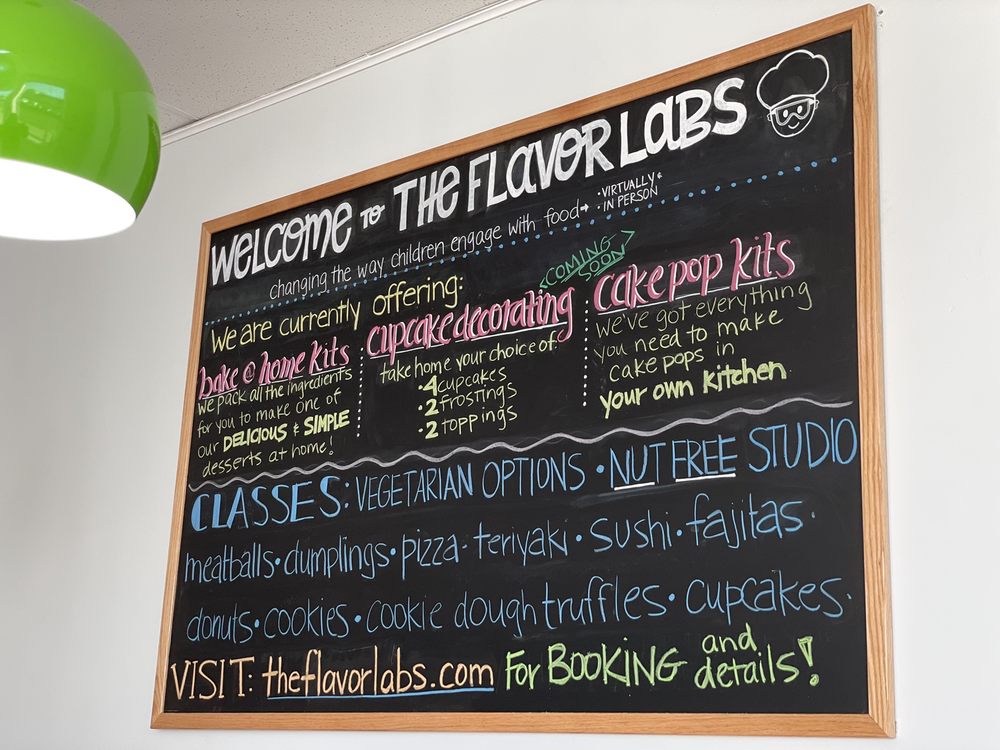 WELCOME TO THE FLAVOR LABS
changing the way children engage with food→ • VIRTUALLY &
• IN PERSON
we are currently offering:
COMING SOON
bake @ home kits
we pack all the ingredients
for you to make one of
our DELICIOUS & SIMPLE
desserts at home!
cupcake decorating
take home your choice of:
• 4 cupcakes
• 2 frostings
• 2 toppings
cake pop kits
we've got everything
you need to make
cake pops in
your own kitchen
CLASSES: VEGETARIAN OPTIONS • NUT FREE STUDIO
meatballs • dumplings • pizza • teriyaki • sushi • fajitas •
donuts • cookies • cookie dough truffles • cupcakes •
VISIT: theflavorlabs.com for BOOKING and details!